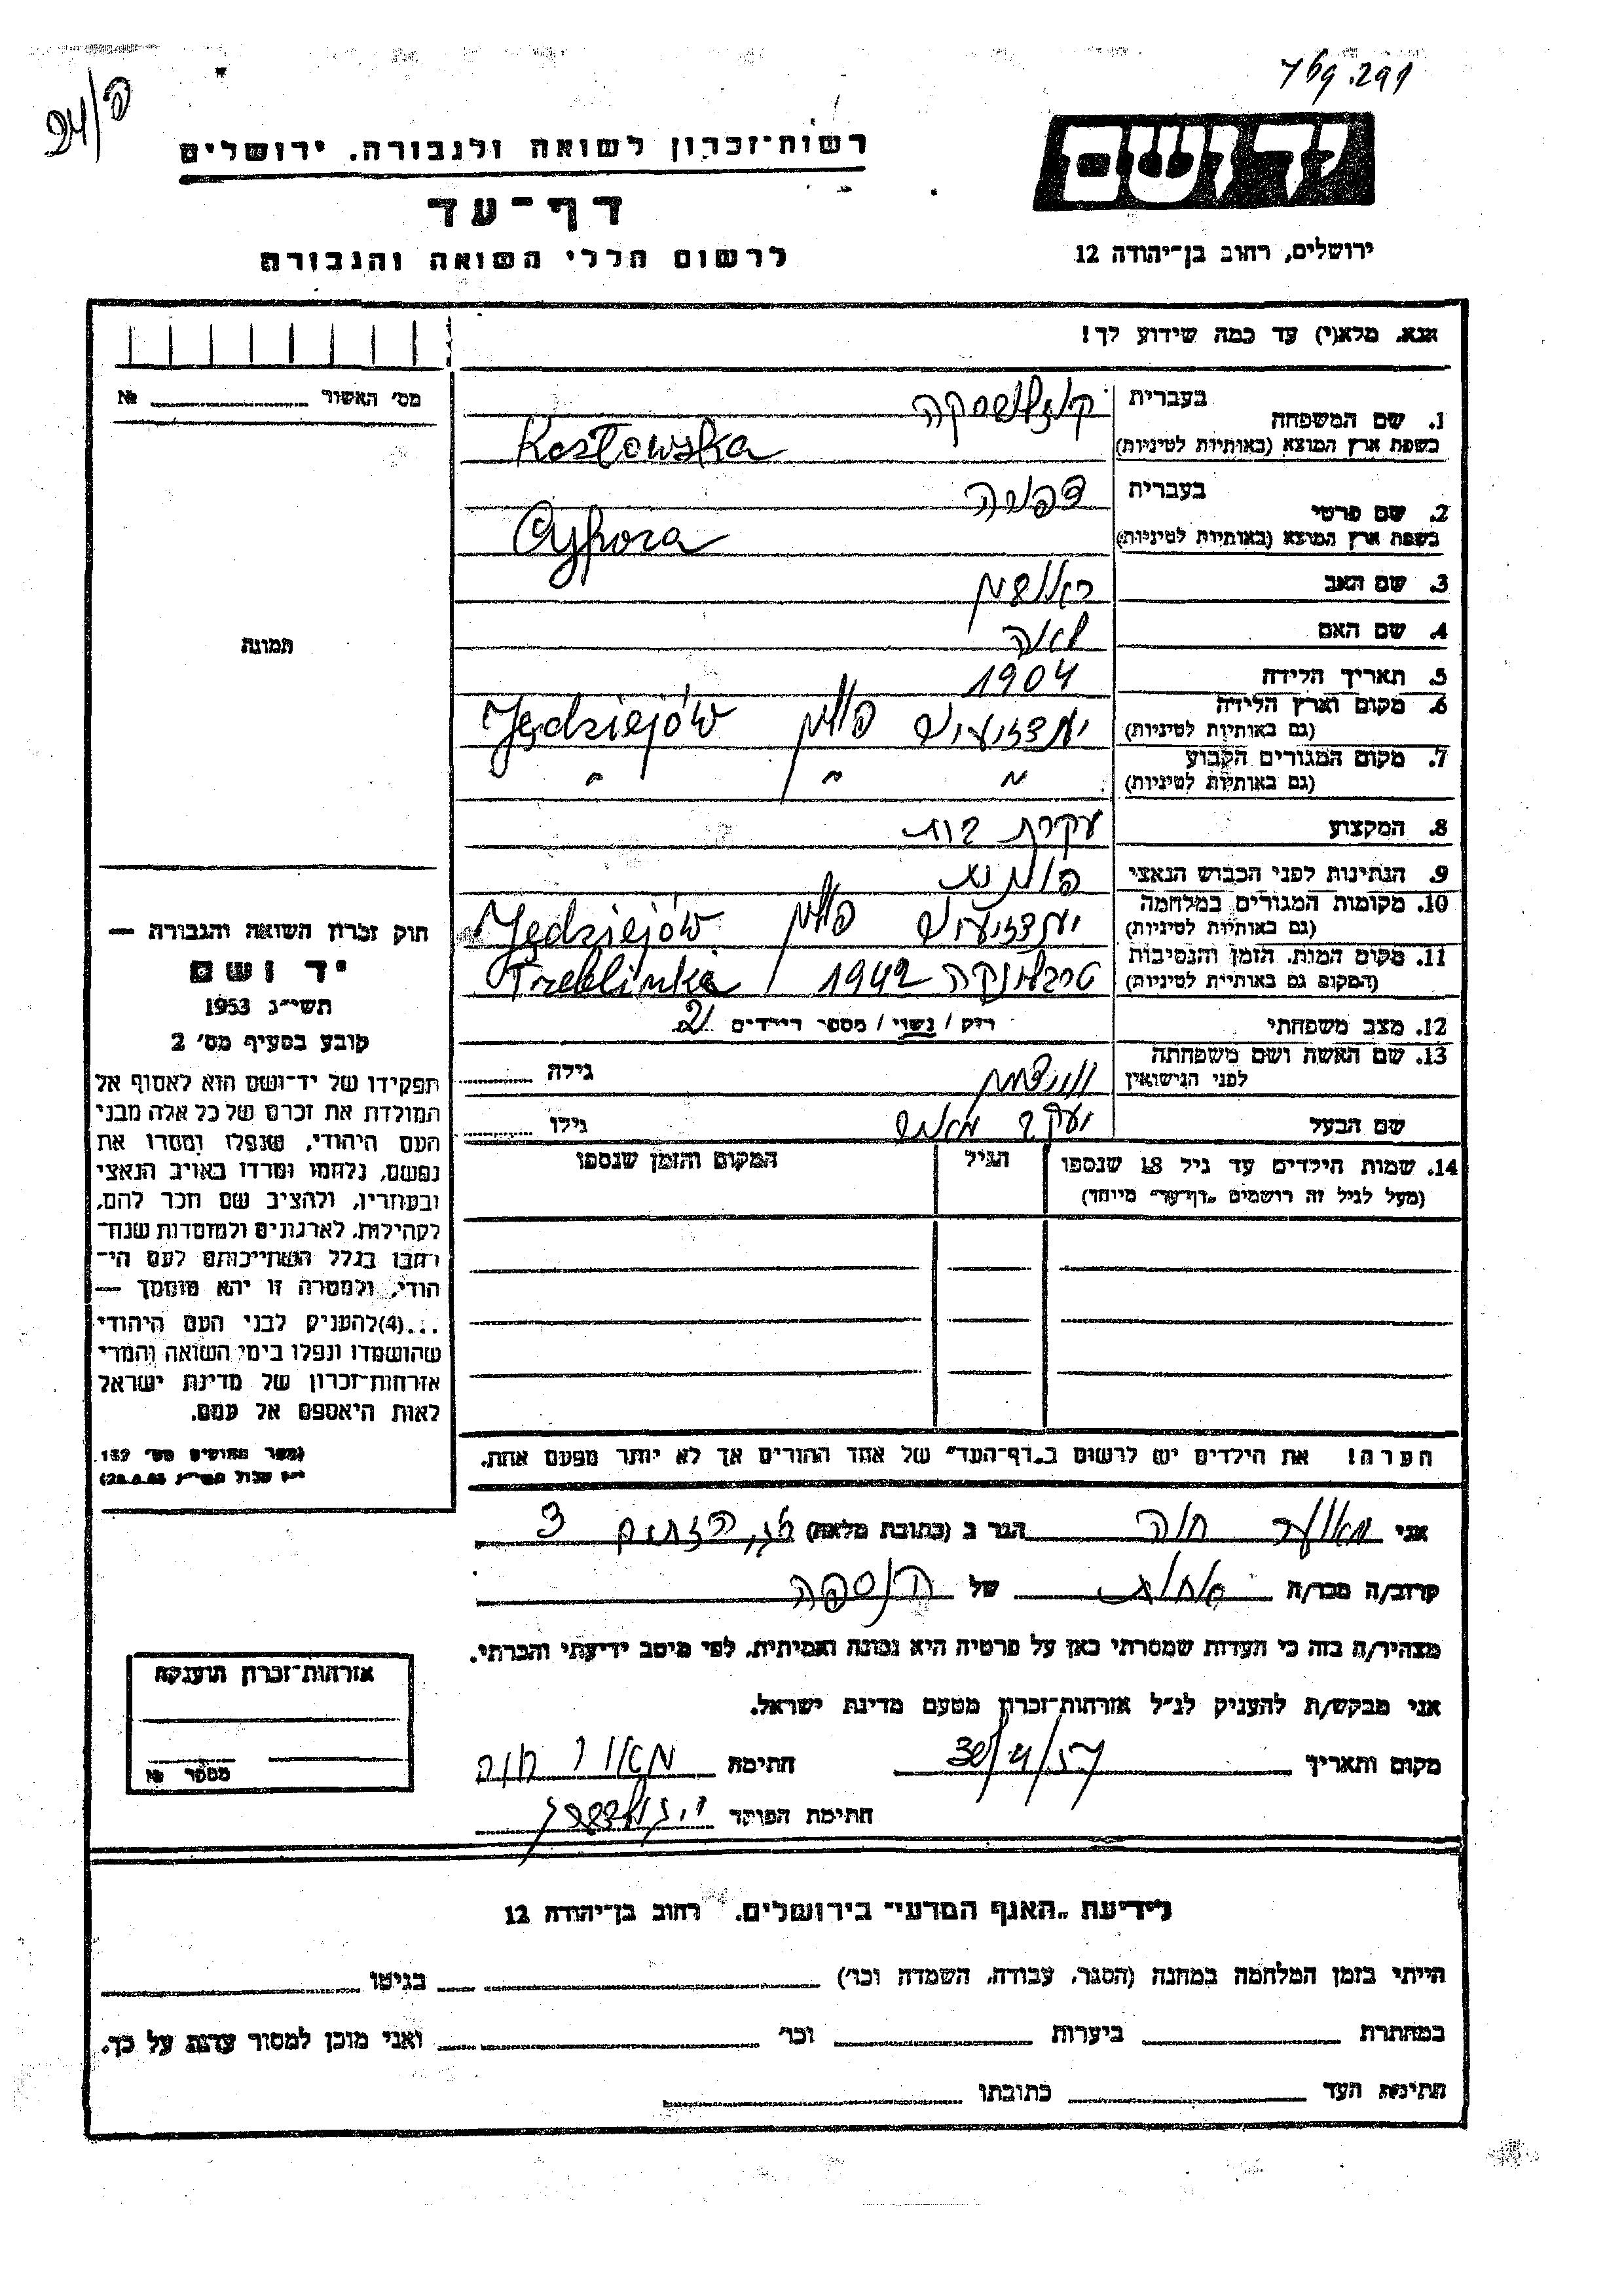 769.291
24/פ
יד ושם
ירושלים, רחוב בן־יהודה 12
רשות־זכרון לשואה ולגבורה. ירושלים
דף־עד
לרשום חללי השואה והגבורה
אנא. מלא(י) עד כמה שידוע לך!
1. שם המשפחה בעברית
בשפת ארץ המוצא (באותיות לטיניות) Kozłowska
2. שם פרטי בעברית
בשפת ארץ המוצא (באותיות לטיניות) Cypora
3. שם האב
4. שם האם לאה
5. תאריך הלידה 1904
6. מקום וארץ הלידה פולין Jędziejów
(גם באותיות לטיניות)
7. מקום המגורים הקבוע " " "
(גם באותיות לטיניות)
8. המקצוע עקרת בית
9. הנתינות לפני הכבוש הנאצי פולנית
10. מקומות המגורים במלחמה פולין Jędziejów
(גם באותיות לטיניות)
11. מקום המות. הזמן והנסיבות טרבלינקה 1942 / Treblinka
(המקום גם באותיות לטיניות)
12. מצב משפחתי רוק / נשוי / מספר הילדים 2
13. שם האשה ושם משפחתה גילה
לפני הנישואין
שם הבעל יעקב גילו
14. שמות הילדים עד גיל 18 שנספו הגיל המקום והזמן שנספו
(מעל לגיל זה רושמים „דף־עד" מיוחד)
הערה! את הילדים יש לרשום ב„דף־העד" של אחד ההורים אך לא יותר מפעם אחת.
מס' האשור №
תמונה
חוק זכרון השואה והגבורה —
יד ושם
תשי"ג 1953
קובע בסעיף מס' 2
תפקידו של יד־ושם הוא לאסוף אל
המולדת את זכרם של כל אלה מבני
העם היהודי, שנפלו ומסרו את
נפשם, נלחמו ומרדו באויב הנאצי
ובעוזריו, ולהציב שם וזכר להם,
לקהילות, לארגונים ולמוסדות שנח־
רבו בגלל השתייכותם לעם הי־
הודי, ולמטרה זו יהא מוסמך —
...(4) להעניק לבני העם היהודי
שהושמדו ונפלו בימי השואה והמרי
אזרחות־זכרון של מדינת ישראל
לאות היאספם אל עמם.
(ספר החוקים מס' 132
אני חוה הגר ב (כתובת מלאה) 3
קרוב/ה מכר/ה אחות של הנספה
מצהיר/ה בזה כי העדות שמסרתי כאן על פרטיה היא נכונה ואמיתית, לפי מיטב ידיעתי והכרתי.
אני מבקש/ת להעניק לנ"ל אזרחות־זכרון מטעם מדינת ישראל.
מקום ותאריך 30/4/57 חתימה מאור חוה
חתימת הפוקד
אזרחות־זכרון הוענקה
מספר №
לידיעת „האגף המדעי" בירושלים. רחוב בן־יהודה 12
הייתי בזמן המלחמה במחנה (הסגר, עבודה, השמדה וכו') בגיטו
במחתרת ביערות וכו' ואני מוכן למסור עדות על כך.
חתימת העד כתובתו